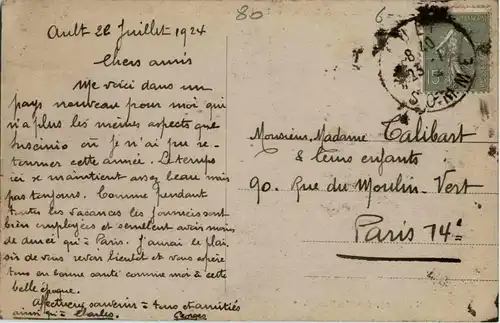 Ault 22 Juillet 1924
Chers amis
Me voici dans un
pays nouveau pour moi qui
n'a plus les mêmes aspects que
Suscinio où je n'ai pu re-
tourner cette année. Le temps
ici se maintient assez beau mais
pas toujours. Comme pendant
toutes les vacances les journées sont
bien employées et semblent avoir moins
de durée qu'à Paris. J'aurai le plai
sir de vous revoir bientôt et vous espère
tous en bonne santé comme moi à cette
belle époque.
Affectueux souvenir à tous et amitiés
ainsi qu'à Charles. Georges
80
6-
T
8 40
23
SOMME
15
Monsieur, Madame Talibart
& leurs enfants
90. Rue du Moulin-Vert
Paris 14e